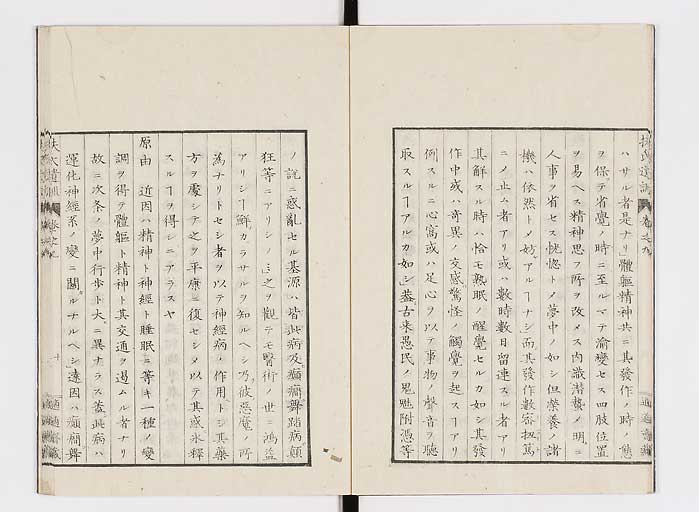 ハサル者是ナリ」體軀精神共ニ其發作ノ時ノ態
ヲ保テ省覺ノ時ニ至ルマテ渝變セス四肢位置
ヲ易ヘス精神思フ所ヲ改メス內識潛蟄ノ明ニ
人事ヲ省セス恍惚トノ夢中ノ如シ但榮養ノ諸
機ハ依然トノ妨アルヿナシ而其發作數密扨篤
ニノ止ム者アリ或ハ數時數日留連スル者アリ
其解スル時ハ恰モ熟眠ノ醒覺セルカ如シ其發
作中或ハ奇異ノ交感驚怪ノ觸覺ヲ起スヿアリ
例スルニ心窩或ハ足心ヲ以テ事物ノ聲音ヲ聽
取スルヿアルカ如シ」蓋古來愚民ノ鬼魅附憑等
ノ說ニ惑亂セル基源ハ皆此病及癲癇舞蹈病顚
狂等ニアリシノミ之ヲ觀テモ醫術ノ世ニ鴻益
アリシヿ鮮カラサルヲ知ルヘシ乃彼惡魔ノ所
為ナリトセシ者ヲ以テ神經病ノ作用トシ其藥
方ヲ處シテ之ヲ平癒ニ復セシヲ以テ其惑氷釋
スルヿヲ得シニアラスヤ
原由 近因ハ精神ト神經ト睡眠ニ等キ一種ノ變
調ヲ得テ體軀ト精神ト其交通ヲ遏ムル者ナリ
故ニ次条ノ夢中行歩ト大ニ異ナラス蓋此病ハ
運化神經系ノ變ニ關ルナルヘシ」遠因ハ癲癇舞
扶氏遺訓 卷之九